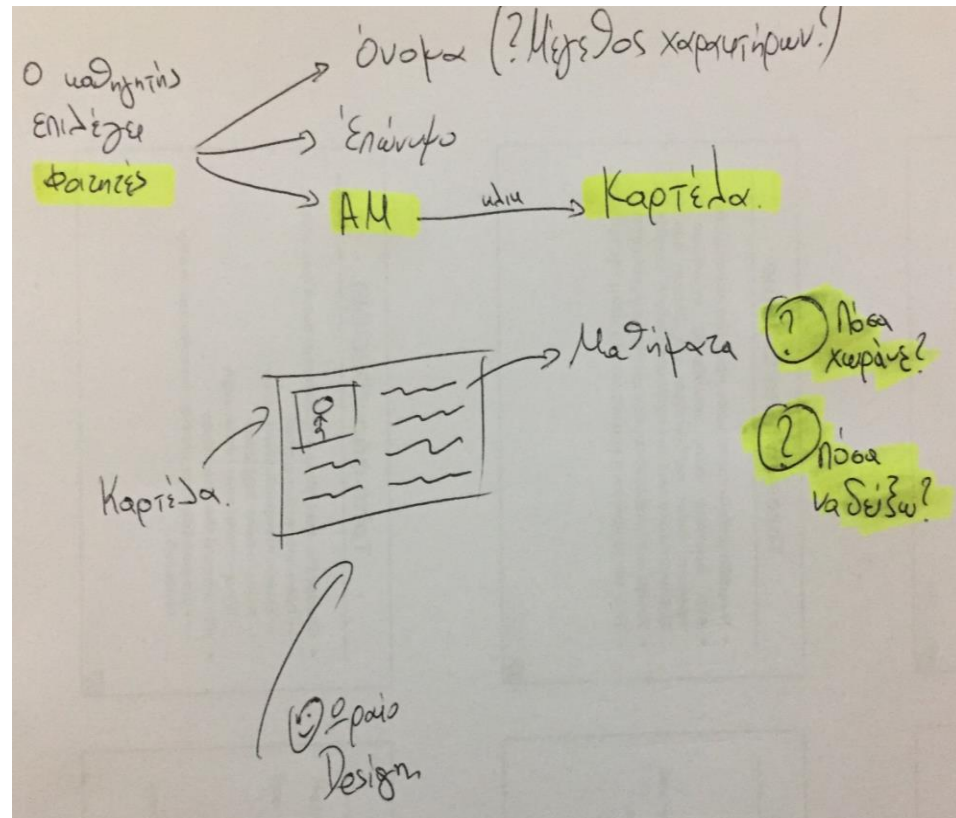 Ο καθηγητής
επιλέγει
Φοιτητές
Όνομα (? Μέγεθος χαρακτήρων?)
Επώνυμο
ΑΜ
κλικ
Καρτέλα.
Καρτέλα.
Μαθήματα
? Πόσα
χωράνε?
? Πόσα
να δείξω?
Ωραίο
Design